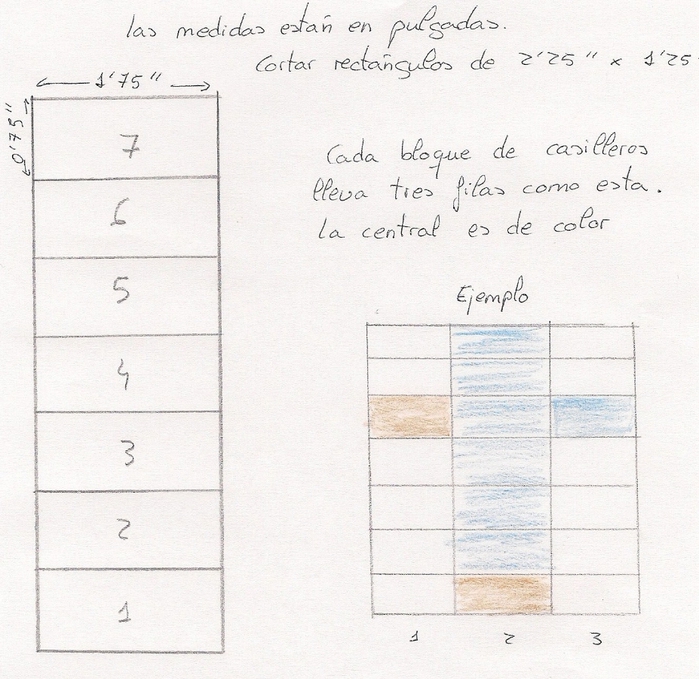 las medidas están en pulgadas.
Cortar rectángulos de 2'25" x 1'25
1'75"
0'75"
7
6
5
4
3
2
1
Cada bloque de casilleros
lleva tres filas como esta.
la central es de color
Ejemplo
1 2 3